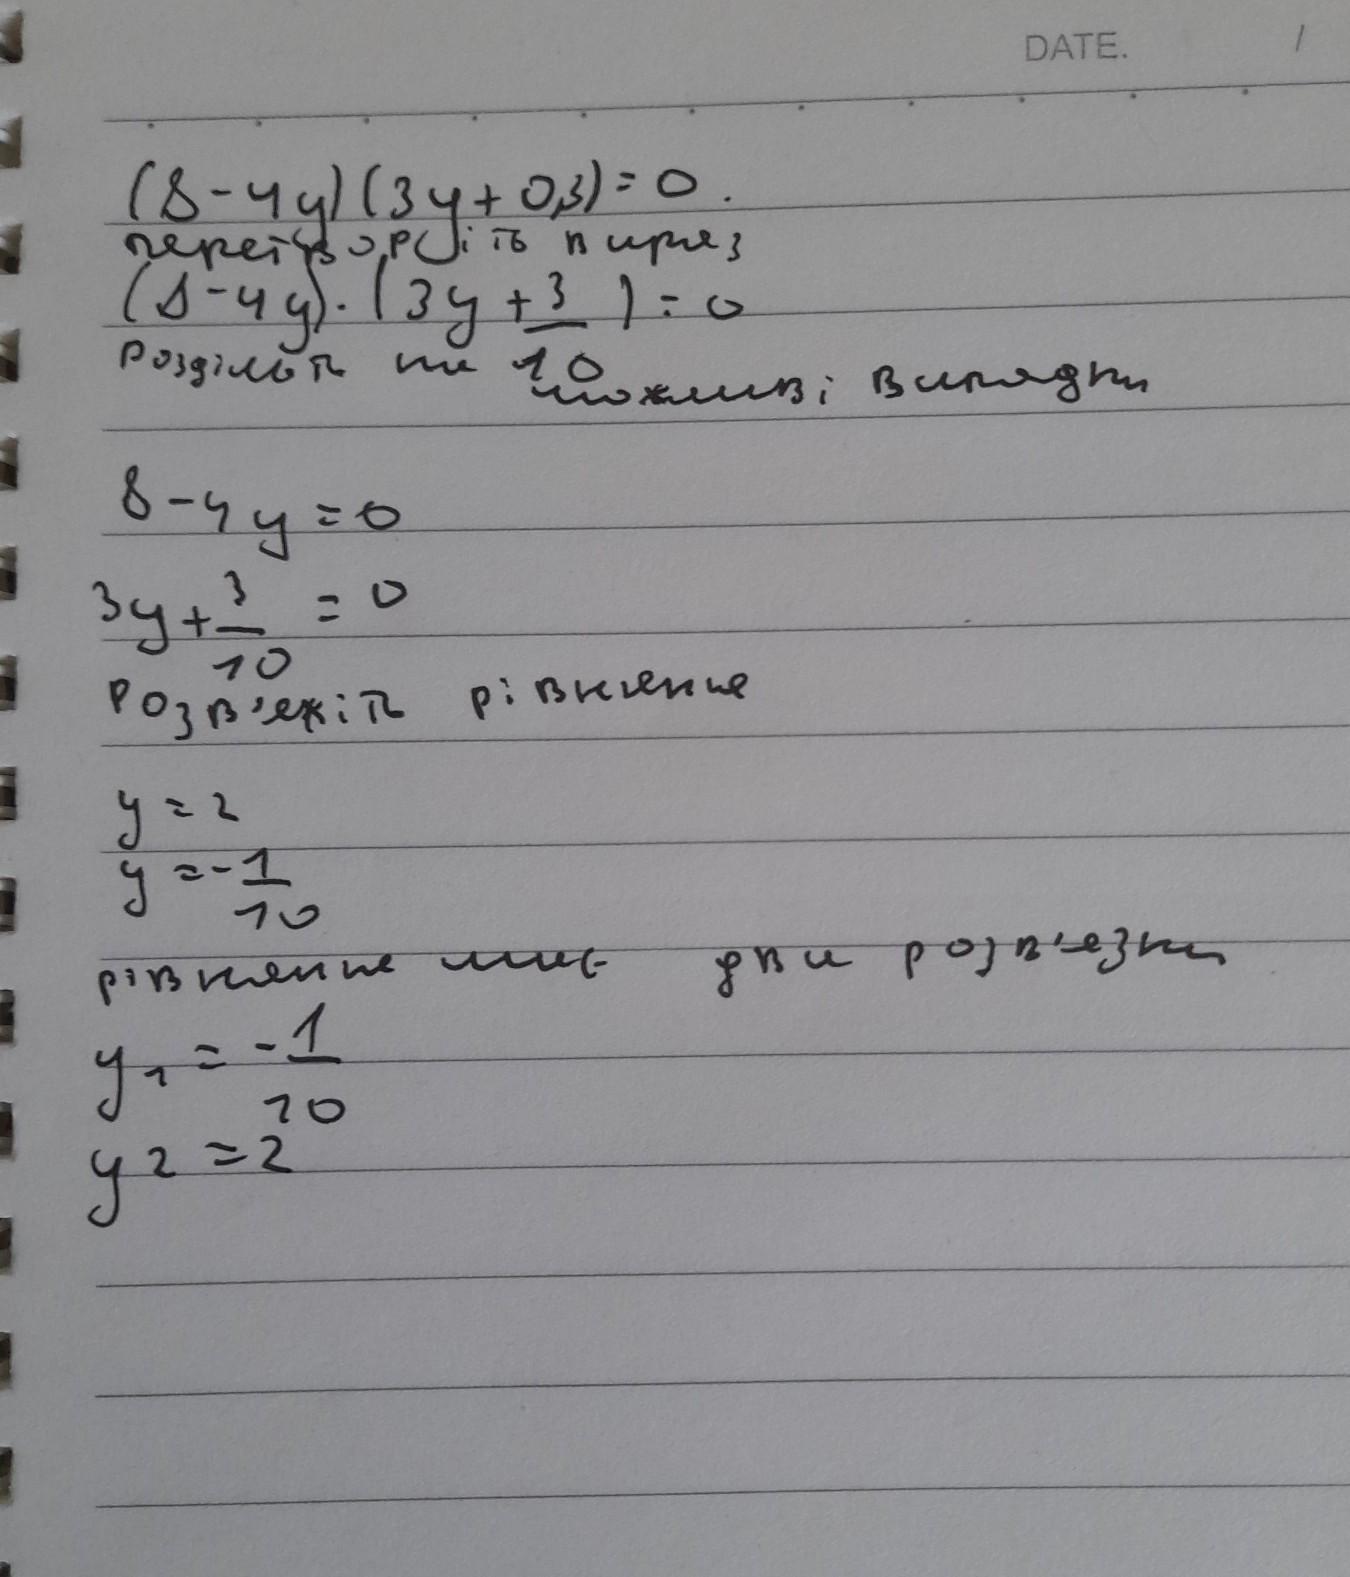 DATE. /
(8-4y)(3y+0,3)=0.
перетворіть вираз
(8-4y)·(3y+3/10)=0
Розділіть на можливі випадки
8-4y=0
3y+3/10=0
Розв'яжіть рівняння
y=2
y=-1/10
рівняння має два розв'язки
y1=-1/10
y2=2